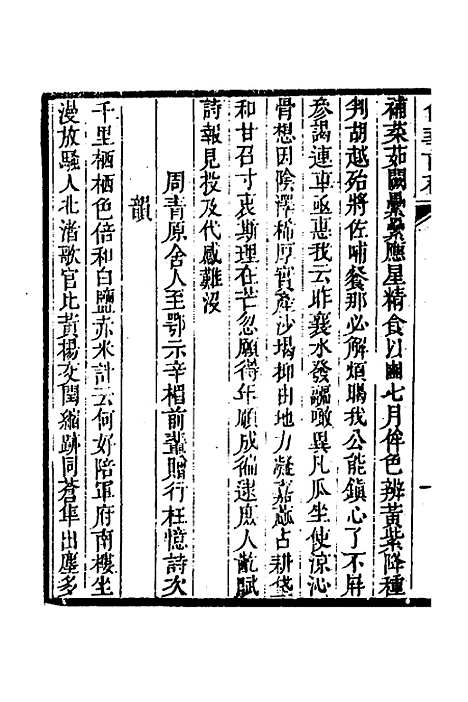 補菜茹闕纍纍應星精食以豳七月侔色辨黃紫降種
判胡越殆將佐哺餐那必解煩暍我公能鎮心了不屏
參謁連車亟惠我云昨襄水發謳噉異凡瓜坐使涼沁
骨想因陰澤稀厚實產沙堨抑由地力凝嘉蓏占耕垡
和甘召寸衷斯理在芒忽願得年願成徧逮庶人齕賦
詩報見投及代感難沒
周青原舍人至鄂示辛楣前輩贈行枉憶詩次
韻
千里栖栖色倍和白鹽赤米計云何好陪軍府南樓坐
漫放騷人北渚歌官比黃楊友閏縮跡同蒼隼出塵多